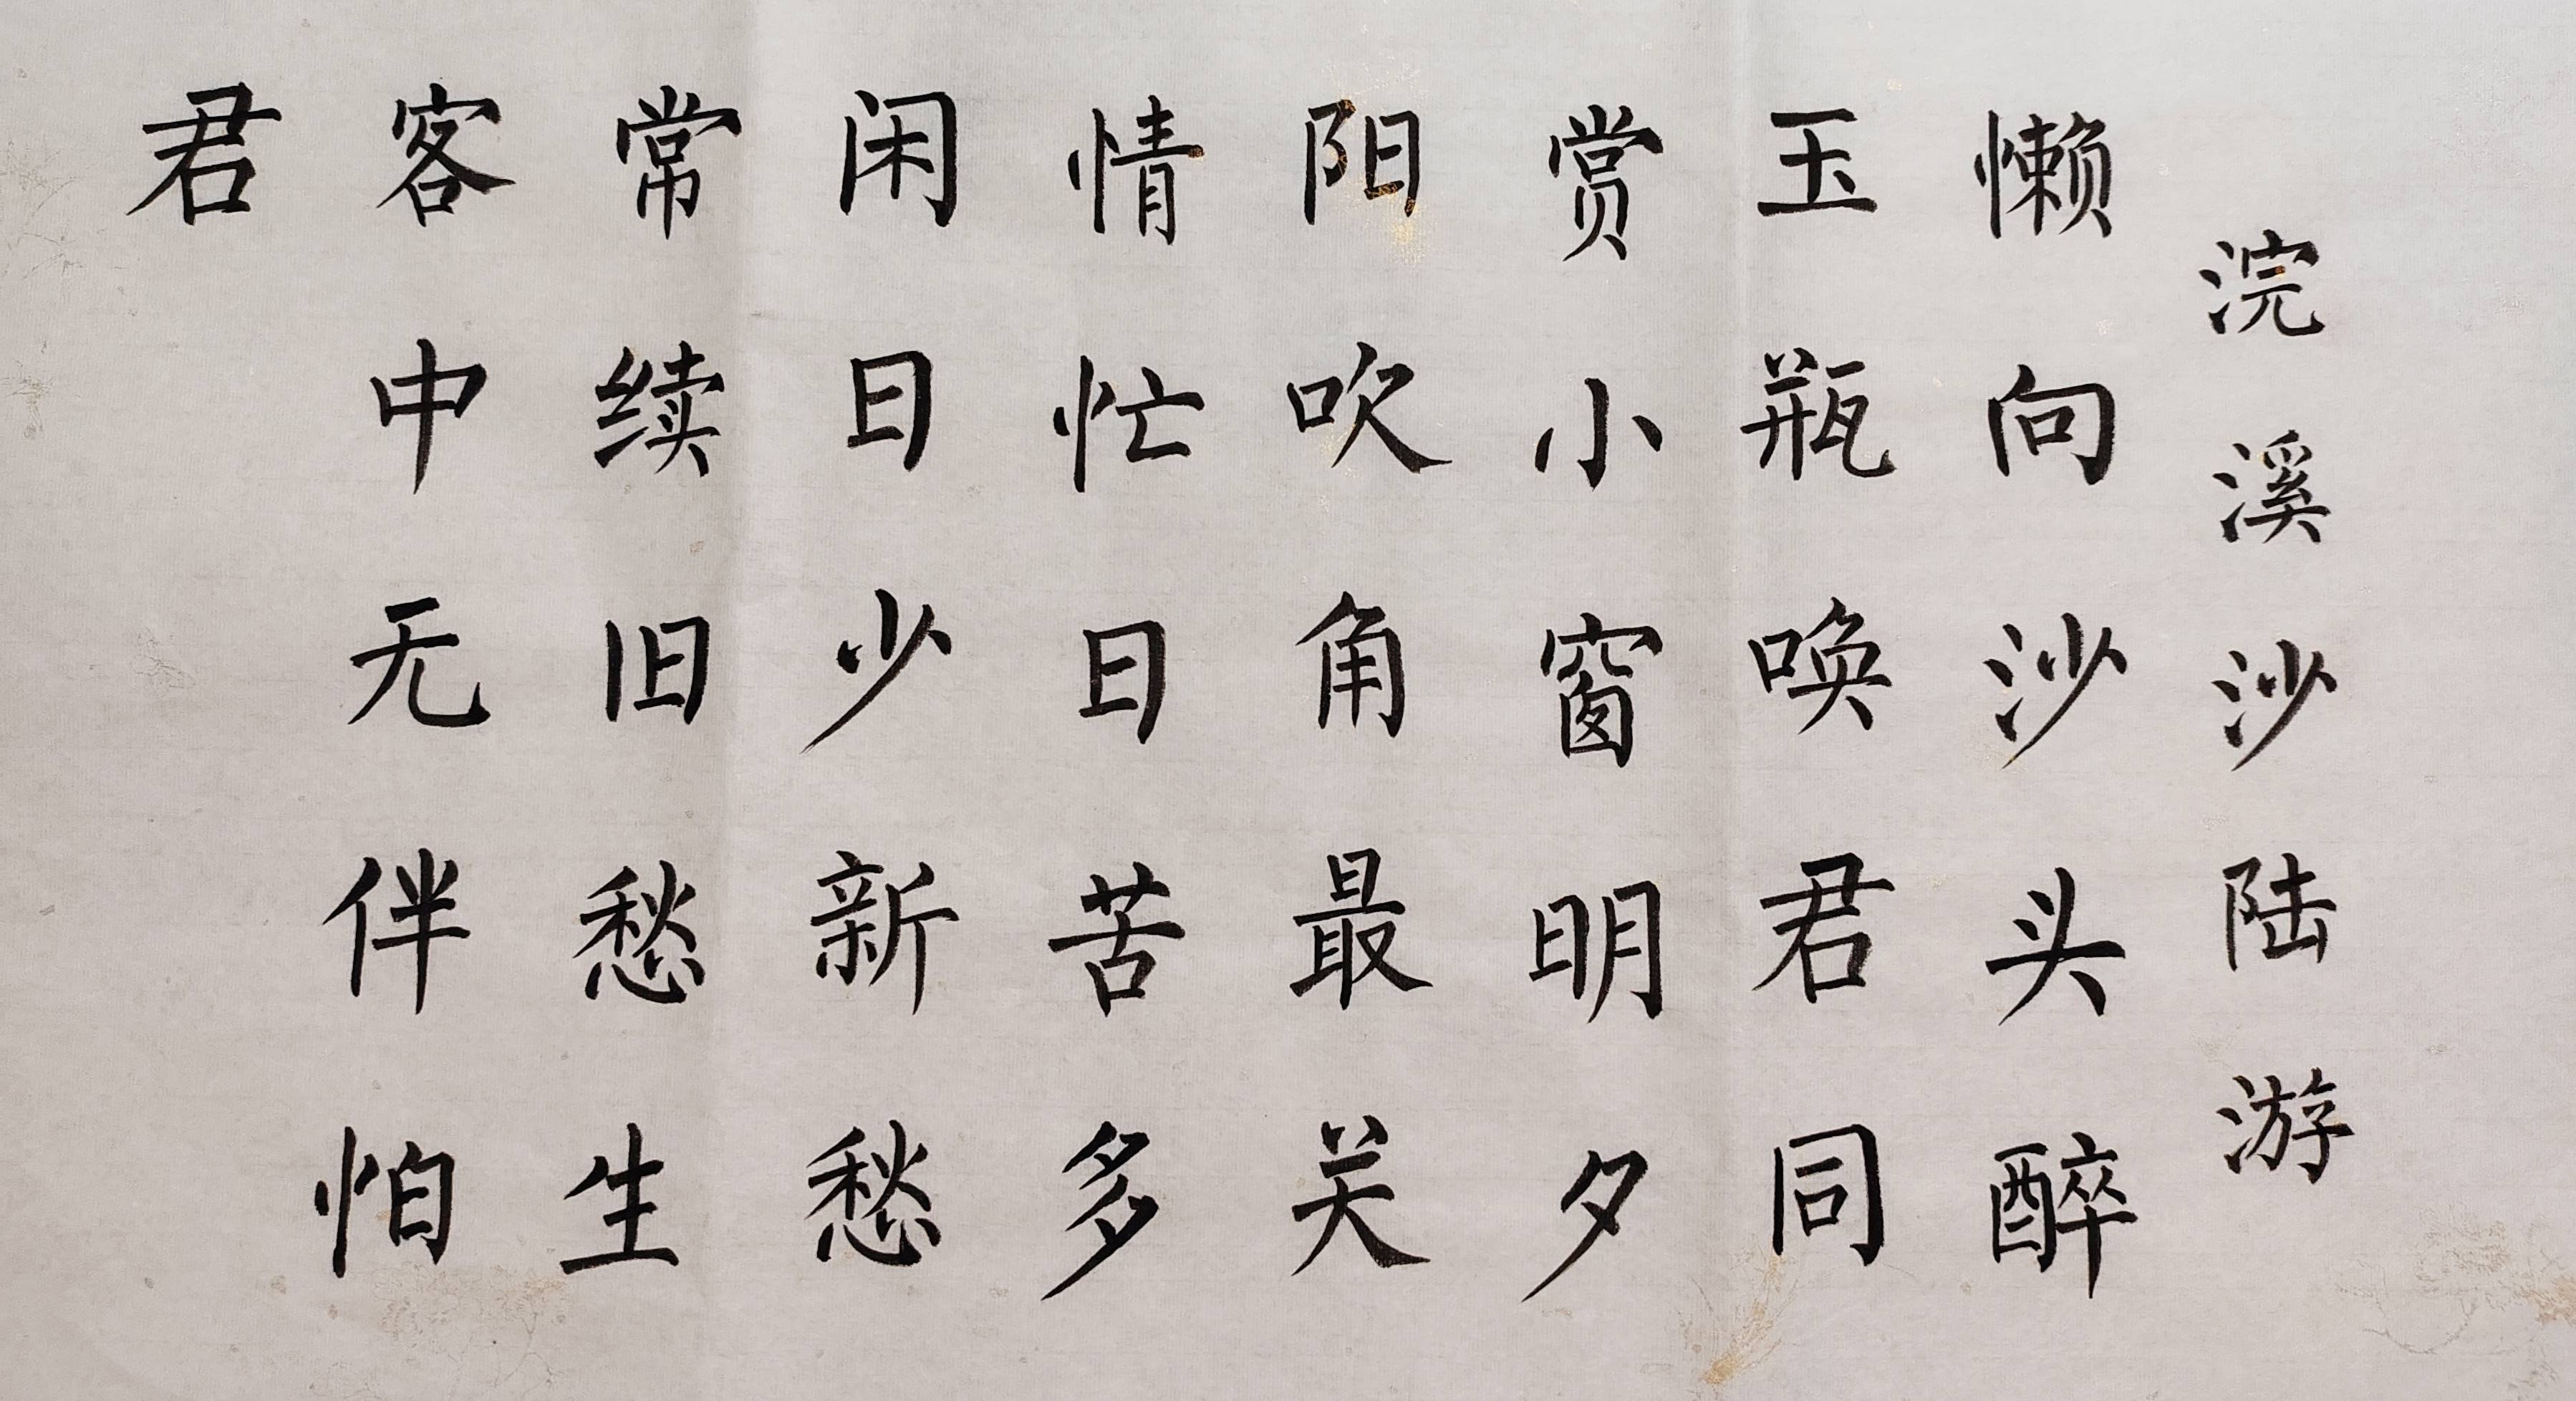 浣溪沙陆游
懒向沙头醉
玉瓶唤君同
赏小窗明夕
阳吹角最关
情忙日苦多
闲日少新愁
常续旧愁生
客中无伴怕
君